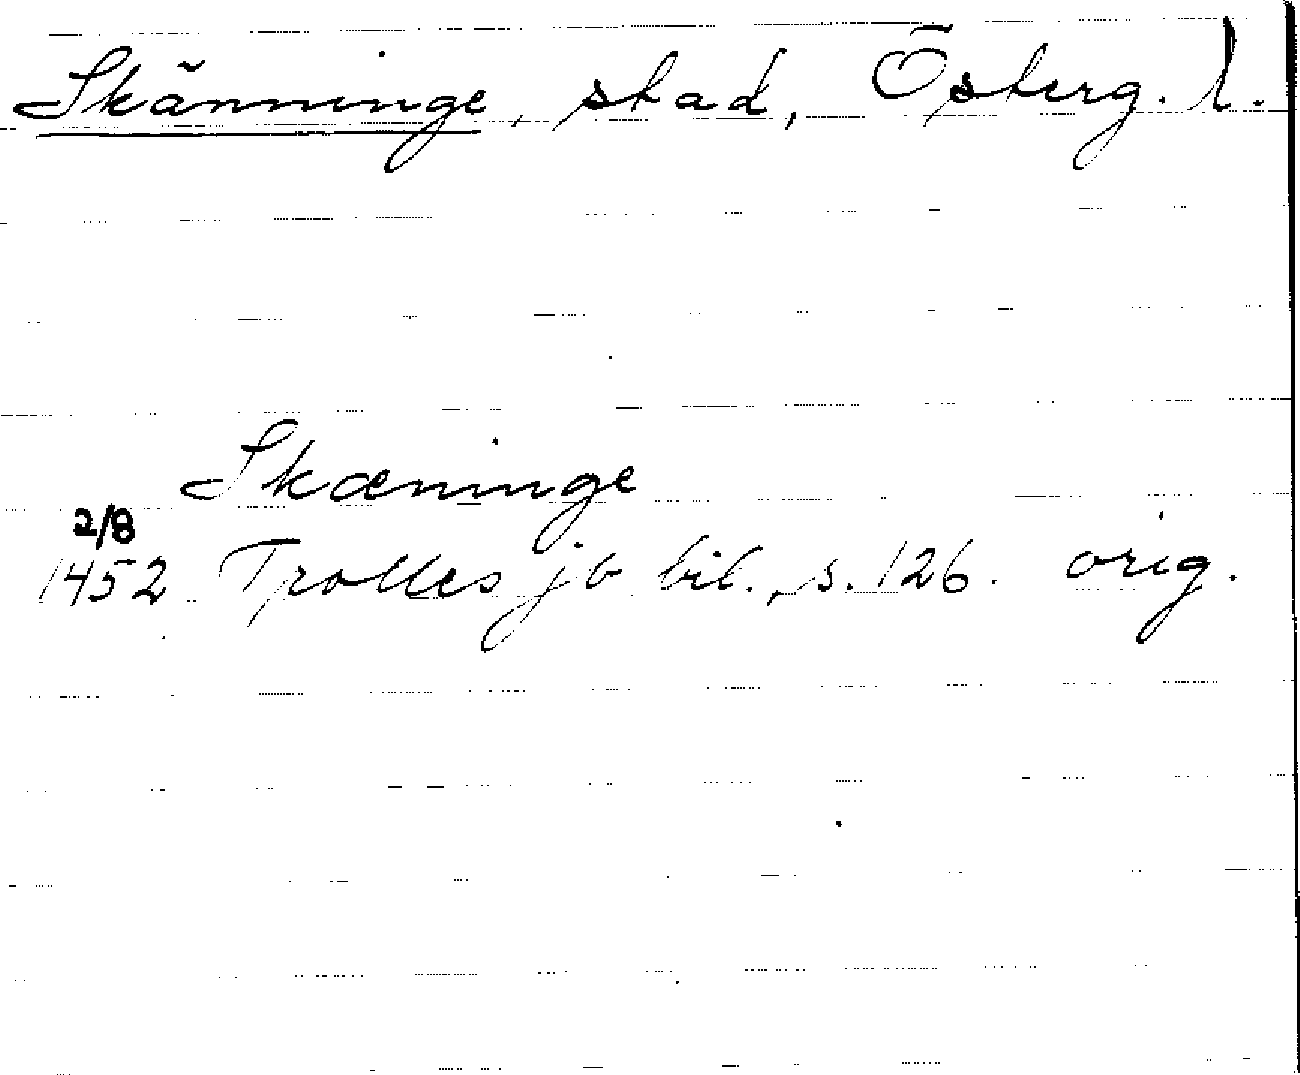 Skänninge, stad, Österg. l.
Skæninge
2/8
1452 Trolles jb bil., s. 126. orig.